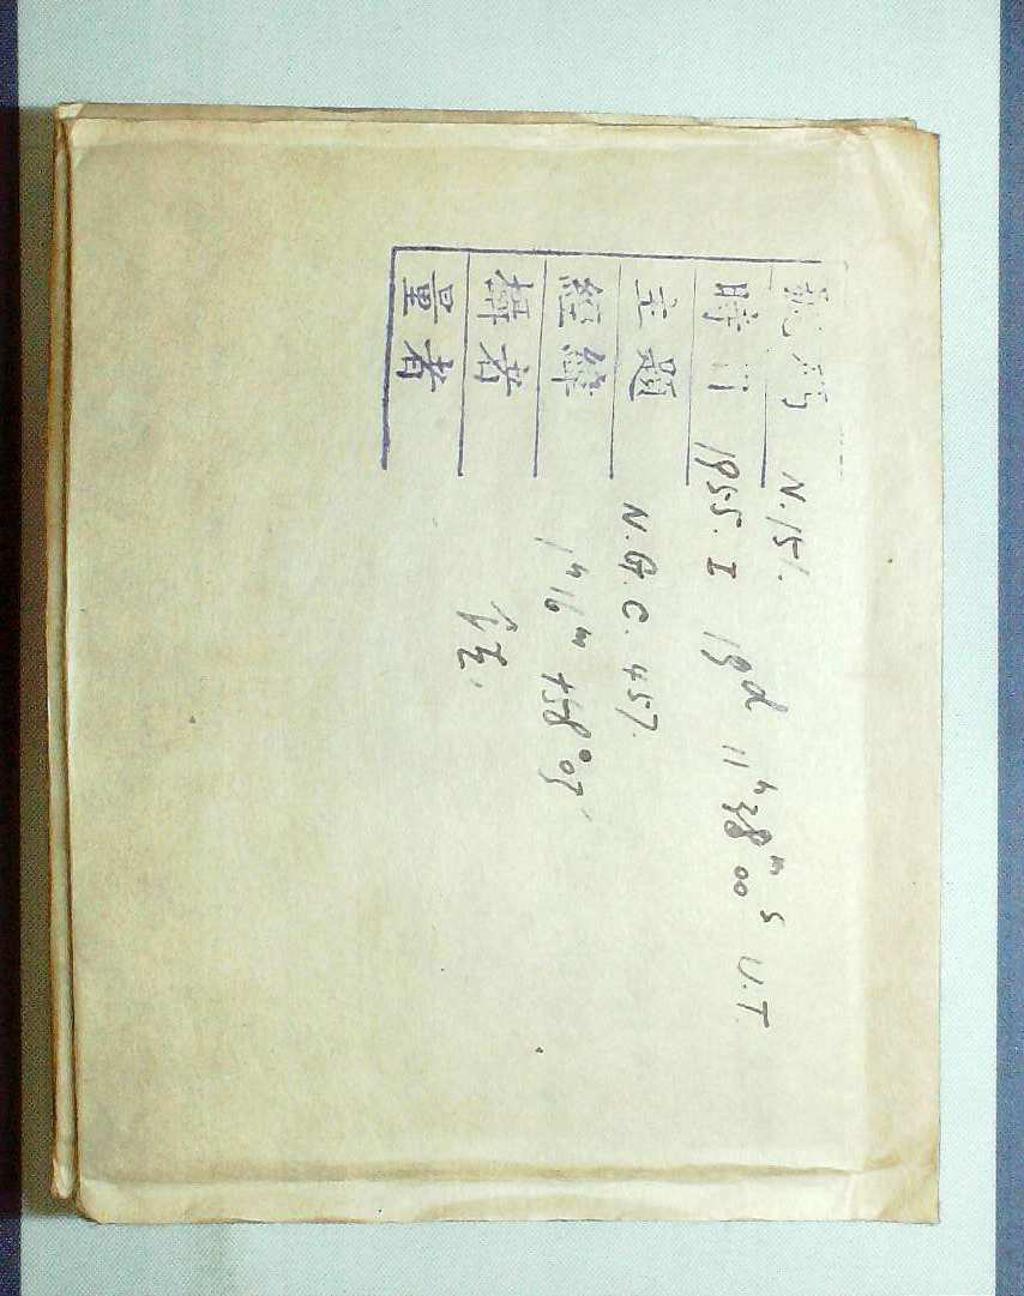 號碼 N.151.
時間 1955. I 18d 11h 38m 00s U.T.
主題 N.G.C. 457.
經緯 1h16m +58°05'
者
量者